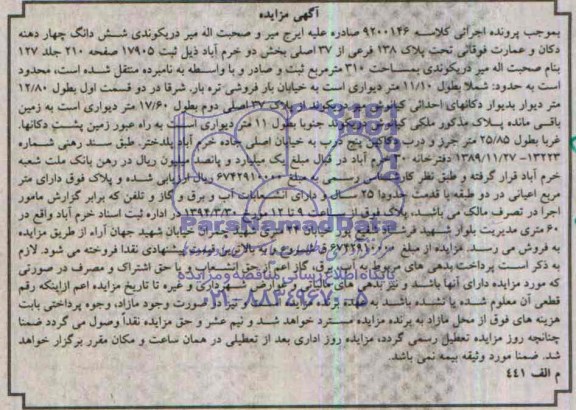 آگهی مزایده
بموجب پرونده اجرائی کلاسه ۹۲۰۰۱۴۶ صادره علیه ایرج میر و صحبت اله میر دریکوندی شش دانگ چهار دهنه
دکان و عمارت فوقانی تحت پلاک ۱۳۸ فرعی از ۳۷ اصلی بخش دو خرم آباد ذیل ثبت ۱۷۹۰۵ صفحه ۲۱۰ جلد ۱۲۷
بنام صحبت اله میر دریکوندی بمساحت ۳۱۰ مترمربع ثبت و صادر و با واسطه به نامبرده منتقل شده است، محدود
است به حدود: شمالا بطول ۱۱/۱۰ متر دیواری است به خیابان بار فروشی تره بار. شرقا در دو قسمت اول بطول ۱۲/۸۰
متر دیوار بدیوار دکانهای احداثی کیانوش دریکوند پلاک ۳۷ اصلی دوم بطول ۱۷/۶۰ متر دیواری است به زمین
باقی مانده پلاک مذکور ملکی کیانوش جنوبا بطول ۱۱ متر دیواری است به راه عبور زمین پشت دکانها.
غربا بطول ۲۵/۸۵ متر جرز و درب دکاکین پنج درب به خیابان اصلی جاده خرم آباد پلدختر. طبق سند رهنی شماره
۱۳۲۲۳- ۱۳۸۹/۱۱/۲۷ دفترخانه خرم آباد در قبال مبلغ یک میلیارد و پانصد میلیون ریال در رهن بانک ملت شعبه
خرم آباد قرار گرفته و طبق نظر کارشناس رسمی به مبلغ ۶۷۴۲۹۱۰۰۰۰ ریال ارزیابی شده و پلاک فوق دارای متر
مربع اعیانی در دو طبقه با قدمت حدودا ۲۵ سال و دارای انشعابات آب و برق و گاز و تلفن که برابر گزارش مامور
اجرا در تصرف مالک می باشد. پلاک فوق از ساعت ۹ تا ۱۲ مورخ ۱۳۹۴/۳/۳۰ در اداره ثبت اسناد خرم آباد واقع در
۶۰ متری مدیریت بلوار شهید خیابان شهید جهان آراء از طریق مزایده
به فروش می رسد. مزایده از مبلغ ۶۷۴۲۹۱۰۰۰۰ ریال شروع و به بالاترین قیمت پیشنهادی نقدا فروخته می شود. لازم
به ذکر است پرداخت بدهی های مربوط به آب، برق، گاز اعم از حق انشعاب و یا حق اشتراک و مصرف در صورتی
که مورد مزایده دارای آنها باشد و نیز بدهی های مالیاتی و عوارض شهرداری و غیره تا تاریخ مزایده اعم ازاینکه رقم
قطعی آن معلوم شده یا نشده باشد به عهده برنده مزایده است و نیز در صورت وجود مازاد، وجوه پرداختی بابت
هزینه های فوق از محل مازاد به برنده مزایده مسترد خواهد شد و نیم عشر و حق مزایده نقداً وصول می گردد ضمنا
چنانچه روز مزایده تعطیل رسمی گردد، مزایده روز اداری بعد از تعطیلی در همان ساعت و مکان مقرر برگزار خواهد
شد. ضمنا مورد وثیقه بیمه نمی باشد.
م الف ۴۴۱
ParsNamadData
پایگاه اطلاع رسانی مناقصه و مزایده
۰۲۱-۸۸۳۴۹۶۷۰-۵